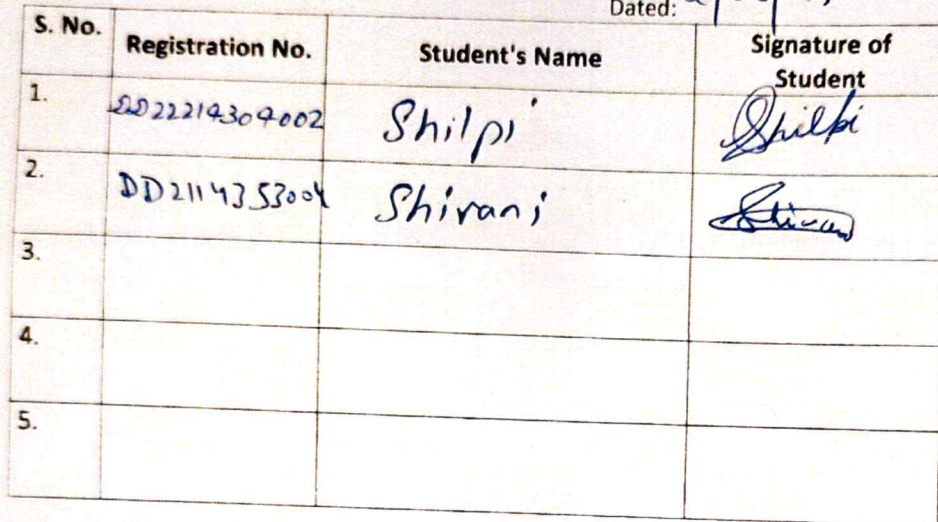 Dated:
S. No. Registration No. Student's Name Signature of Student
1. DD22214304002 Shilpi Shilpi
2. DD2114353004 Shivani Shivani
3.
4.
5.